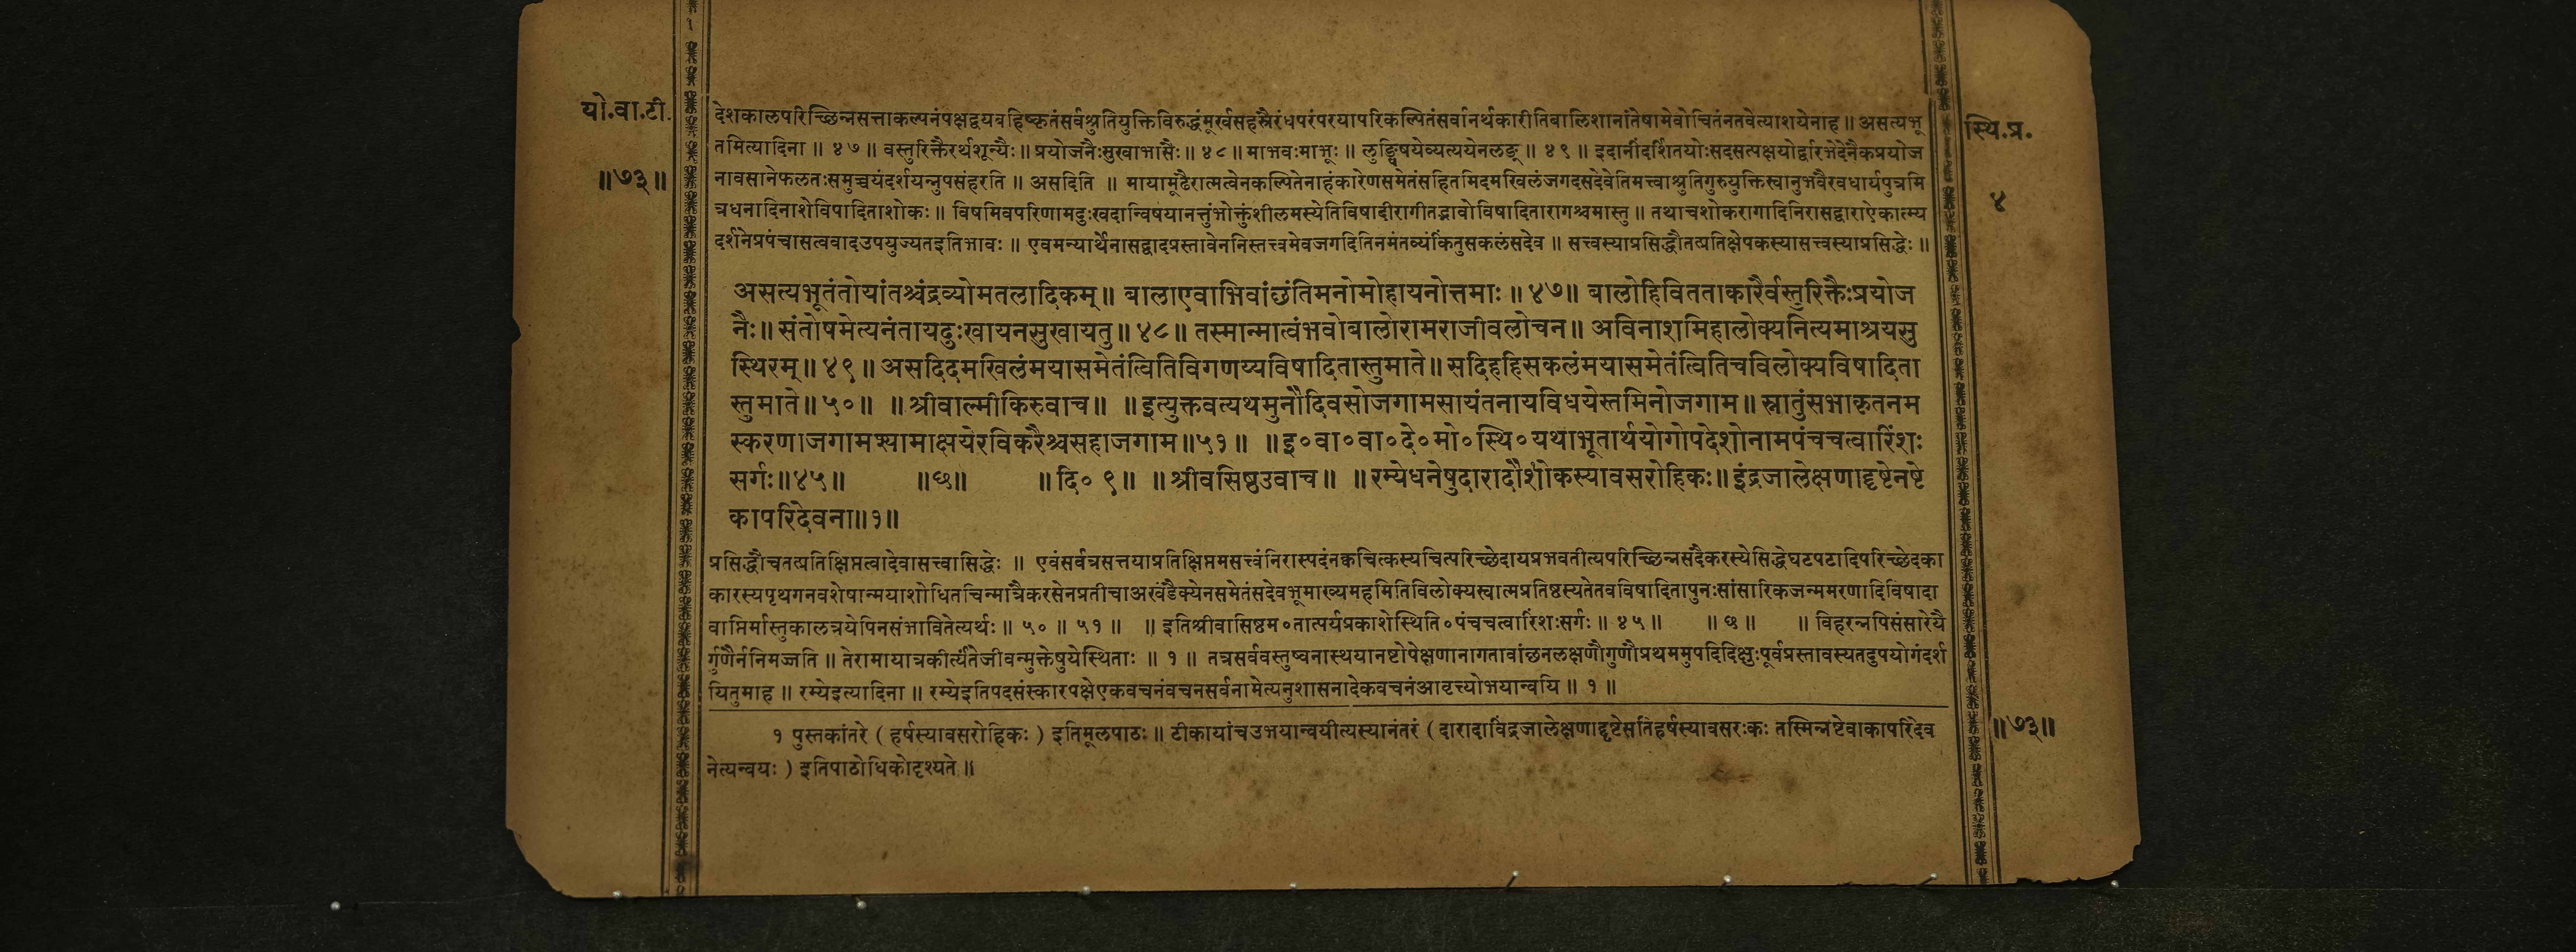 यो.वा.टी.
॥७३॥
स्थि.प्र.
४
देशकालपरिच्छिन्नसत्ताकल्पनंपक्षद्वयबहिष्कृतंसर्वश्रुतियुक्तिविरुद्धंमूर्खसहस्रैरंधपरंपरयापरिकल्पितंसर्वानर्थकारीतिबालिशानांतेषामेवोचितंनतवेत्याशयेनाह ॥ असत्यभू
तमित्यादिना ॥ ४७ ॥ वस्तुरिक्तैरर्थशून्यैः ॥ प्रयोजनैःसुखाभासैः ॥ ४८ ॥ माभवःमाभूः ॥ लुङ्विषयेव्यत्ययेनलङ् ॥ ४९ ॥ इदानींदर्शितयोःसदसत्पक्षयोर्द्वारभेदेनैकप्रयोज
नावसानेफलतःसमुच्चयंदर्शयन्नुपसंहरति ॥ असदिति ॥ मायामूढैरात्मत्वेनकल्पितेनाहंकारेणसमेतंसहितमिदमखिलंजगदसदेवेतिमत्त्वाश्रुतिगुरुयुक्तिस्वानुभवैरवधार्यपुत्रमि
त्रधनादिनाशेविषादिताशोकः ॥ विषमिवपरिणामदुःखदान्विषयानत्तुंभोक्तुंशीलमस्येतिविषादीरागीतद्भावोविषादितारागश्चमास्तु ॥ तथाचशोकरागादिनिरासद्वाराऐकात्म्य
दर्शनेप्रपंचासत्ववादउपयुज्यतइतिभावः ॥ एवमन्यार्थेनासद्वादप्रस्तावेननिस्तत्त्वमेवजगदितिनमंतव्यंकिंतुसकलंसदेव ॥ सत्त्वस्याप्रसिद्धौतत्प्रतिक्षेपकस्यासत्त्वस्याप्रसिद्धेः ॥
असत्यभूतंतोयांतश्चंद्रव्योमतलादिकम् ॥ बालाएवाभिवांछंतिमनोमोहायनोत्तमाः ॥ ४७ ॥ बालोहिवितताकारैर्वस्तुरिक्तैःप्रयोज
नैः ॥ संतोषमेत्यनंतायदुःखायनसुखायतु ॥ ४८ ॥ तस्मान्मात्वंभवोबालोरामराजीवलोचन ॥ अविनाशमिहालोक्यनित्यमाश्रयसु
स्थिरम् ॥ ४९ ॥ असदिदमखिलंमयासमेतंत्वितिविगणय्यविषादितास्तुमाते ॥ सदिहहिसकलंमयासमेतंत्वितिचविलोक्यविषादिता
स्तुमाते ॥ ५० ॥ ॥ श्रीवाल्मीकिरुवाच ॥ ॥ इत्युक्तवत्यथमुनौदिवसोजगामसायंतनायविधयेस्तमिनोजगाम ॥ स्नातुंसभाकृतनम
स्करणाजगामश्यामाक्षयेरविकरैश्चसहाजगाम ॥५१॥ ॥ इ०वा०वा०दे०मो०स्थि०यथाभूतार्थयोगोपदेशोनामपंचचत्वारिंशः
सर्गः ॥४५॥ ॥छ॥ ॥ दि० ९ ॥ ॥ श्रीवसिष्ठउवाच ॥ ॥ रम्येधनेषुदारादौशोकस्यावसरोहिकः ॥ इंद्रजालेक्षणाद्दृष्टेनष्टे
कापरिदेवना ॥१॥
प्रसिद्धौचतत्प्रतिक्षिप्तत्वादेवासत्त्वासिद्धेः ॥ एवंसर्वत्रसत्तयाप्रतिक्षिप्तमसत्त्वंनिरास्पदंनक्वचित्कस्यचित्परिच्छेदायप्रभवतीत्यपरिच्छिन्नसदैकरस्येसिद्धेघटपटादिपरिच्छेदका
कारस्यपृथगनवशेषान्मयाशोधितचिन्मात्रैकरसेनप्रतीचाअखंडैक्येनसमेतंसदेवभूमाख्यमहमितिविलोक्यस्वात्मप्रतिष्ठस्यतेतवविषादितापुनःसांसारिकजन्ममरणादिविषादा
वाप्तिर्मास्तुकालत्रयेपिनसंभावितेत्यर्थः ॥ ५० ॥ ५१ ॥ ॥ इतिश्रीवासिष्ठम०तात्पर्यप्रकाशेस्थिति०पंचचत्वारिंशःसर्गः ॥ ४५ ॥ ॥ छ ॥ ॥ विहरन्नपिसंसारेयै
र्गुणैर्ननिमज्जति ॥ तेरामायात्रकीर्त्यंतेजीवन्मुक्तेषुयेस्थिताः ॥ १ ॥ तत्रसर्ववस्तुष्वनास्थयानष्टोपेक्षणानागतावांछनलक्षणौगुणौप्रथममुपदिदिक्षुःपूर्वप्रस्तावस्यतदुपयोगंदर्श
यितुमाह ॥ रम्येइत्यादिना ॥ रम्येइतिपदसंस्कारपक्षेएकवचनंवचनसर्वनामेत्यनुशासनादेकवचनंआवृत्त्योभयान्वयि ॥ १ ॥
१ पुस्तकांतरे ( हर्षस्यावसरोहिकः ) इतिमूलपाठः ॥ टीकायांचउभयान्वयीत्यस्यानंतरं ( दारादाविंद्रजालेक्षणाद्दृष्टेसतिहर्षस्यावसरःकः तस्मिन्नष्टेवाकापरिदेव
नेत्यन्वयः ) इतिपाठोधिकोदृश्यते ॥
॥७३॥